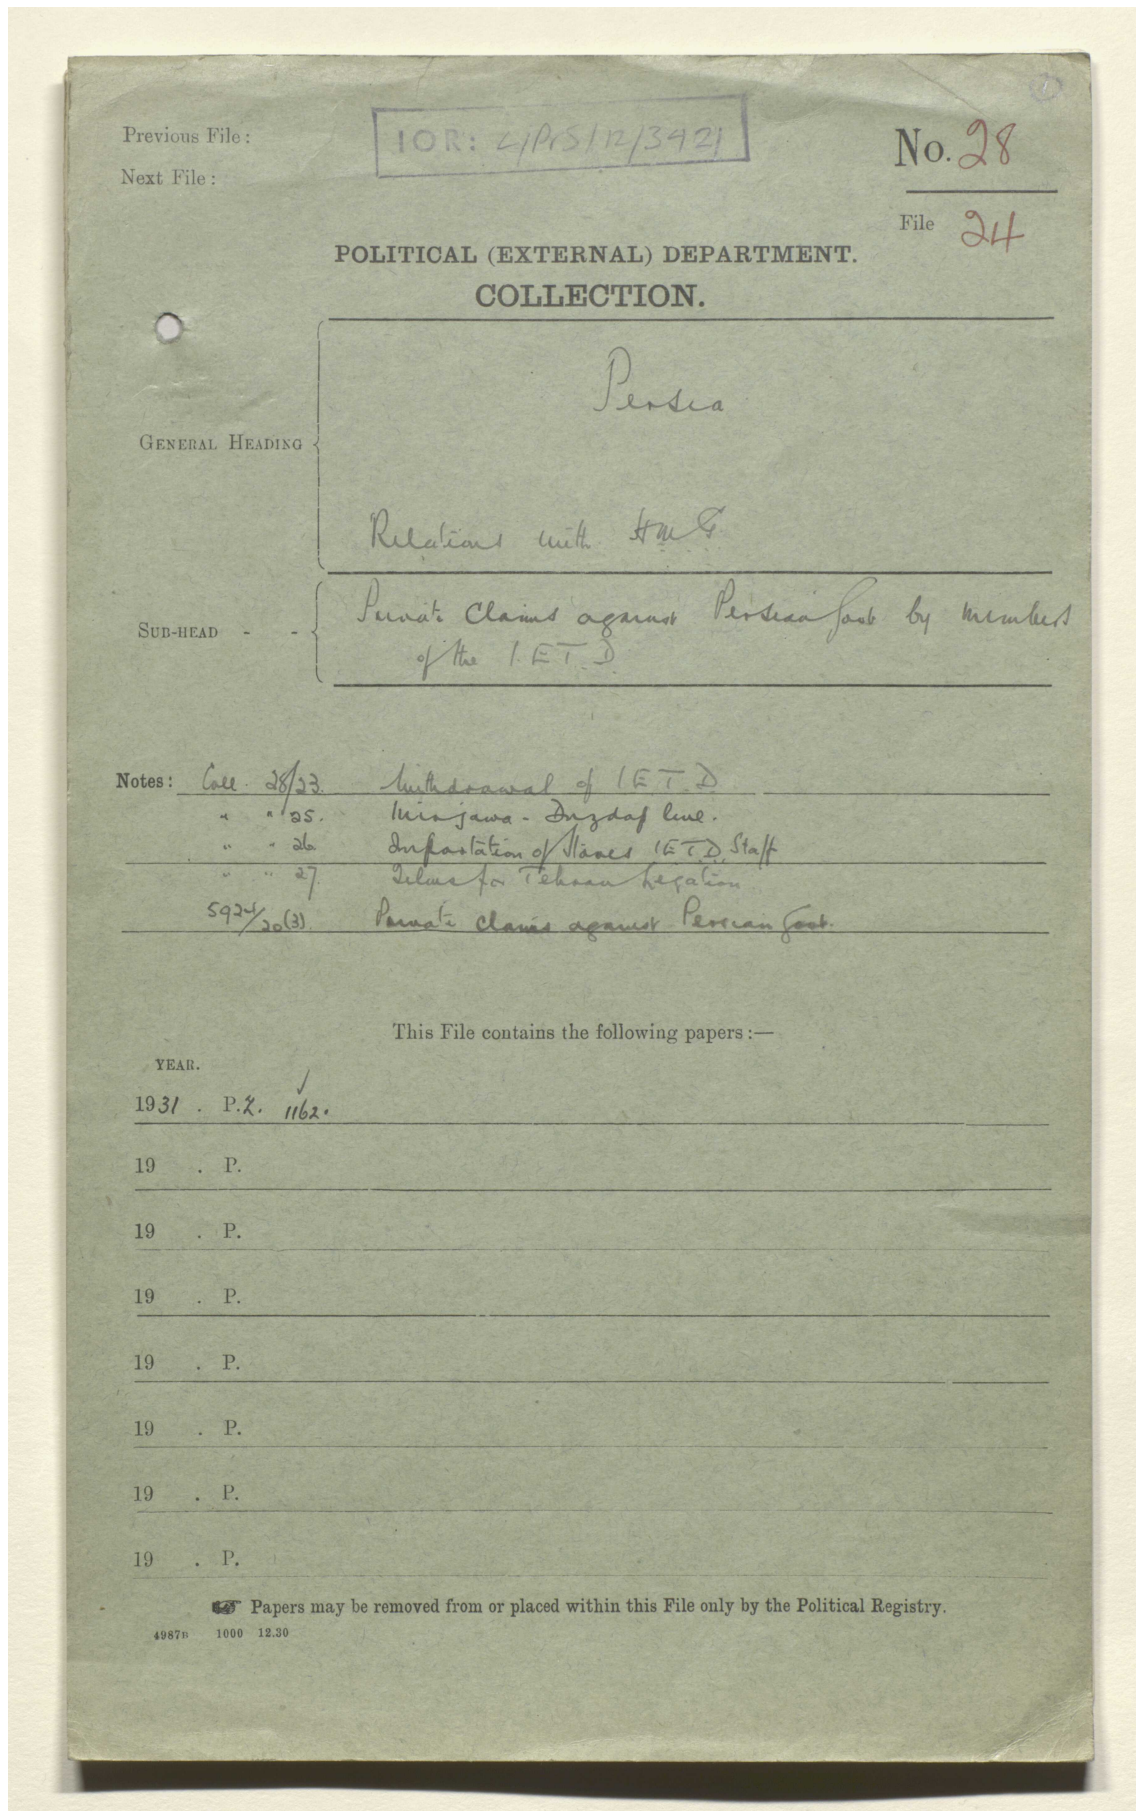 1
Previous File :
IOR: L/P&S/12/3421
No. 28
Next File :
File 24
POLITICAL (EXTERNAL) DEPARTMENT.
COLLECTION.
Persia
GENERAL HEADING
Relations with HMG
SUB-HEAD - -
Private Claims against Persian Govt by members
of the I.E.T.D
Notes: Coll 28/23. Withdrawal of I E T D
" " 25. Mirjawa - Duzdap line.
" " 26 Importation of Stores I E T D Staff
" " 27. for Tehran Legation
5924/20(3) Private claims against Persian Govt.
This File contains the following papers :—
YEAR.
1931 . P.Z. 1162.
19 . P.
19 . P.
19 . P.
19 . P.
19 . P.
19 . P.
19 . P.
☛ Papers may be removed from or placed within this File only by the Political Registry.
4987B 1000 12.30